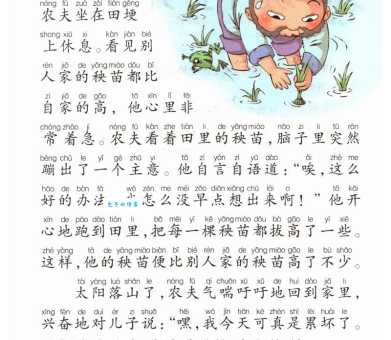 nóng fū zuò zài tián gěng
农夫坐在田埂
shang xiū xi kàn jiàn bié
上休息。看见别
rén jiā de yāng miáo dōu bǐ
人家的秧苗都比
zì jiā de gāo tā xīn li fēi
自家的高，他心里非
cháng zháo jí nóng fū kàn zhe tián li de yāng miáo nǎo zi li tū rán
常着急。农夫看着田里的秧苗，脑子里突然
bèng chū le yí gè zhǔ yi tā zì yán zì yǔ dào ài zhè me
蹦出了一个主意。他自言自语道：“唉，这么
hǎo de bàn fǎ wǒ zěn me méi zǎo diǎn xiǎng chū lái a tā kāi
好的办法 怎么没早点想出来啊！”他开
xīn de pǎo dào tián li bǎ měi yì kē yāng miáo dōu bá gāo le yì xiē
心地跑到田里，把每一棵秧苗都拔高了一些。
zhè yàng tā de yāng miáo biàn bǐ bié rén jiā de yāng miáo gāo le bù shǎo
这样，他的秧苗便比别人家的秧苗高了不少。
tài yáng luò shān le nóng fū qì chuǎn xū xū de huí dào jiā li
太阳落山了，农夫气喘吁吁地回到家里，
xīng fèn de duì ér zi shuō hēi wǒ jīn tiān kě zhēn shì lèi huài le
兴奋地对儿子说：“嘿，我今天可真是累坏了。